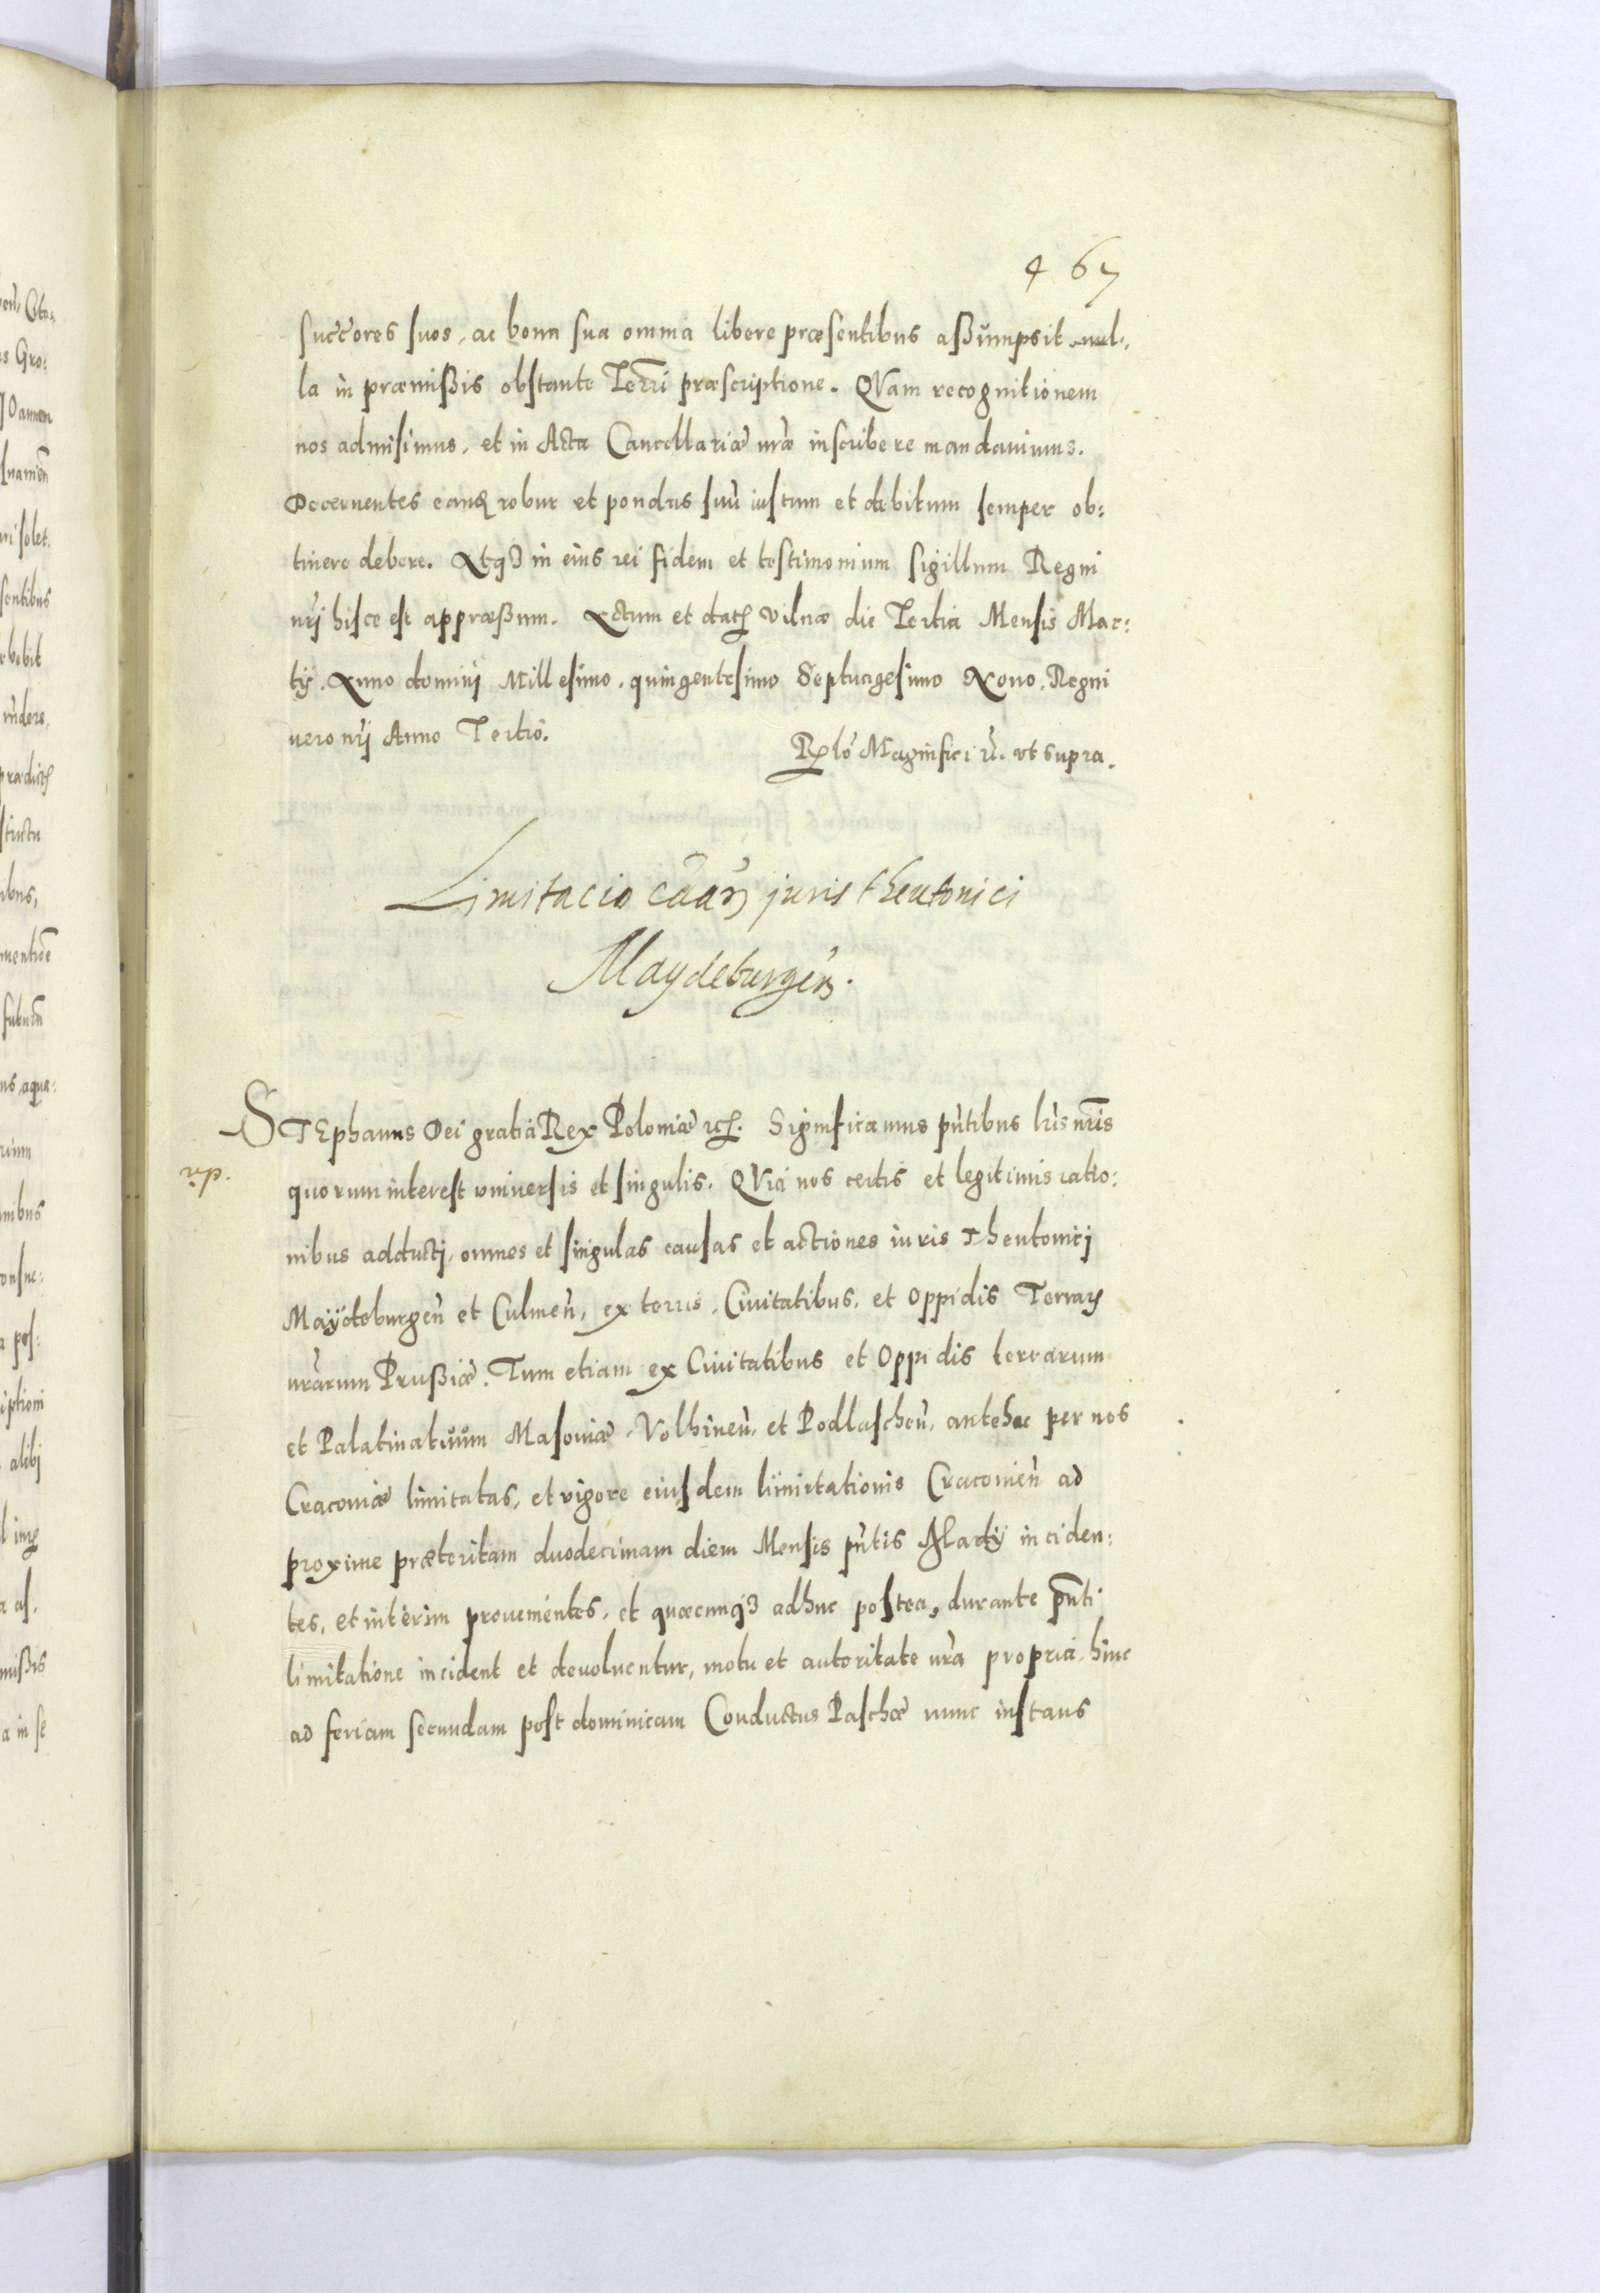 467
succores suos, ac bona sua omnia libere præsentibus assumpsit nul-
la in præmissis obstante Terrī præscriptione. QVam recognitionem
nos admisimus, et in Acta Cancellariæ nr̃æ inscribere mandavimus.
Decernentes eamq robur et pondus suū iustum et debitum semper ob:
tinere debere. Atq3 in eius rei fidem et testimonium sigillum Regni
nr̃j hisce est appræssum. Actum et dat Vilnæ die Tertia Mensis Mar:
tij. Anno dominj Millesimo, quingentesimo Septuagesimo Nono, Regni
uero nr̃j Anno Tertio.
Rlõ Magnifici r̃. ut supra.
Limitacio cãar juris theutonici
Maydeburgeñ.
STEphanus Dei gratia Rex Poloniæ rc. Significamus pñtibus lr̃is nr̃is
quorum interest vniuersis et singulis. QVia nos certis et legitimis ratio:
nibus adductj, omnes et singulas causas et actiones iuris Theutonicj
Maÿdeburgeñ et Culmeñ, ex terris, Ciuitatibus, et Oppidis Terrar
nr̃arum Prussiæ. Tum etiam ex Ciuitatibus et Oppidis terrarum
et Palatinatuum Masouiæ, Volhineñ, et Podlascheñ, antehac per nos
Cracouiæ limitatas, et vigore eiusdem limitationis Cracouieñ ad
proxime præteritam duodecimam diem Mensis pñtis Martij inciden:
tes, et interim prouenientes, et quæcunq3 adhuc postea, durante pñti
limitatione incident et deuoluentur, motu et autoritate nr̃a propria, hinc
ad feriam secundam post dominicam Conductus Paschæ nunc instans